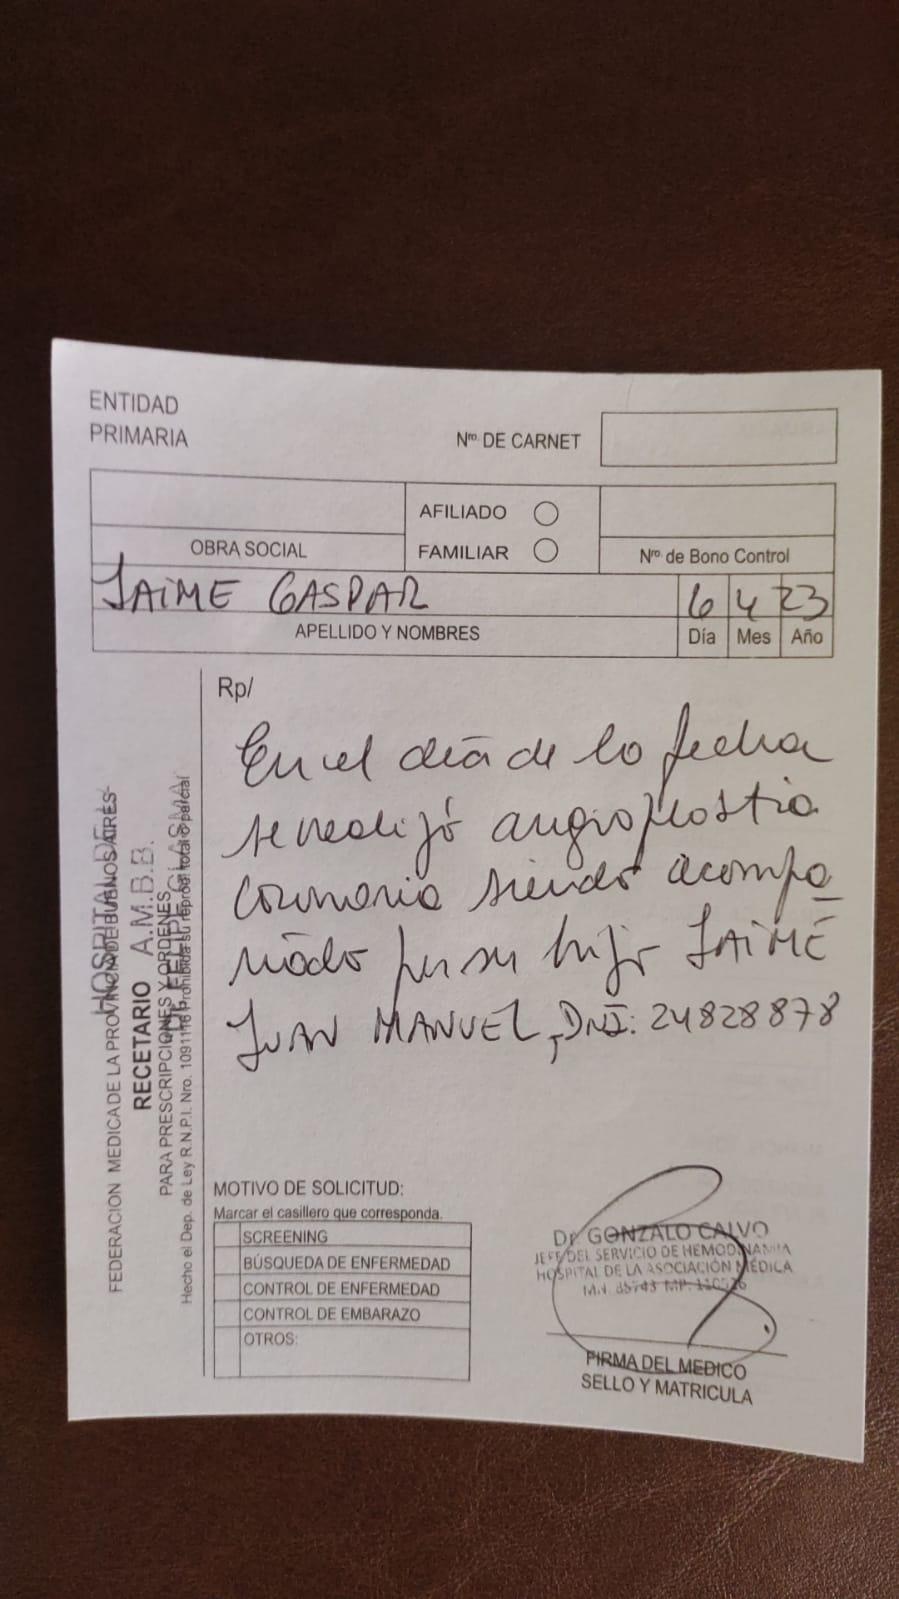 ENTIDAD
PRIMARIA
Nro. DE CARNET
AFILIADO
OBRA SOCIAL
FAMILIAR
Nro. de Bono Control
JAIME GASPAR
6 4 23
APELLIDO Y NOMBRES
Día Mes Año
Rp/
En el día de la fecha
se realizó angioplastia
coronaria siendo acompa
ñado por su hijo JAIME
JUAN MANUEL, DNI: 24828878
HOSPITAL DE LA
A.M.B.B.
DR. FELIPE GLASMAN
FEDERACION MEDICA DE LA PROVINCIA DE BUENOS AIRES
RECETARIO
PARA PRESCRIPCIONES Y ORDENES
Hecho el Dep. de Ley R.N.P.I. Nro. 1091116 Prohibida su reprod. total o parcial
MOTIVO DE SOLICITUD:
Marcar el casillero que corresponda.
SCREENING
BÚSQUEDA DE ENFERMEDAD
CONTROL DE ENFERMEDAD
CONTROL DE EMBARAZO
OTROS:
Dr. GONZALO CALVO
JEFE DEL SERVICIO DE HEMODINAMIA
HOSPITAL DE LA ASOCIACIÓN MÉDICA
FIRMA DEL MEDICO
SELLO Y MATRICULA